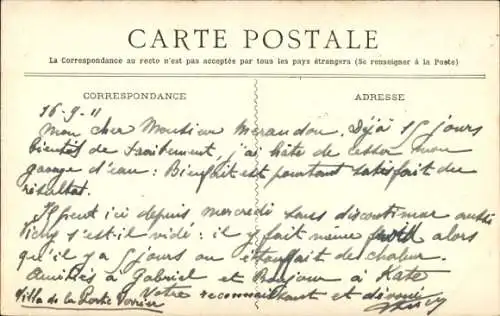 CARTE POSTALE
La Correspondance au recto n'est pas acceptée par tous les pays étrangers (Se renseigner à la Poste)
CORRESPONDANCE
ADRESSE
16-9-11
Mon cher Monsieur Merandon. Déjà 15 jours
bientôt de traitement, j'ai hâte de cesser mon
gavage d'eau : est pourtant satisfait du
résultat.
Il pleut ici depuis mercredi sans discontinuer aussi
Vichy s'est-il vidé : il y fait même froid alors
qu'il y a 5 jours on étouffait de chaleur.
Amitiés à Gabriel et Bonjour à Kate
Votre reconnaissant et dévoué
Villa de la Porte Verrier